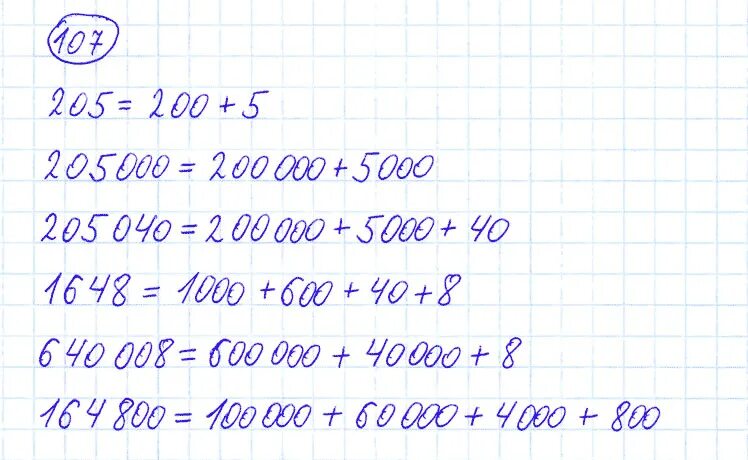 107
205 = 200 + 5
205000 = 200 000 + 5000
205 040 = 200 000 + 5000 + 40
1648 = 1000 + 600 + 40 + 8
640 008 = 600 000 + 40 000 + 8
164 800 = 100 000 + 60 000 + 4000 + 800